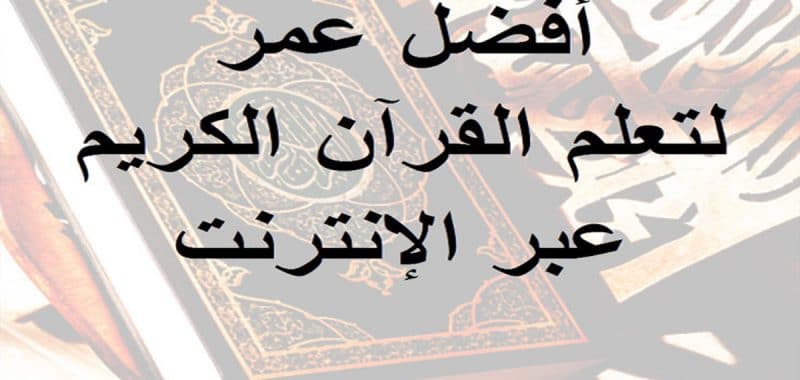 أفضل عمر
لتعلم القرآن الكريم
عبر الإنترنت